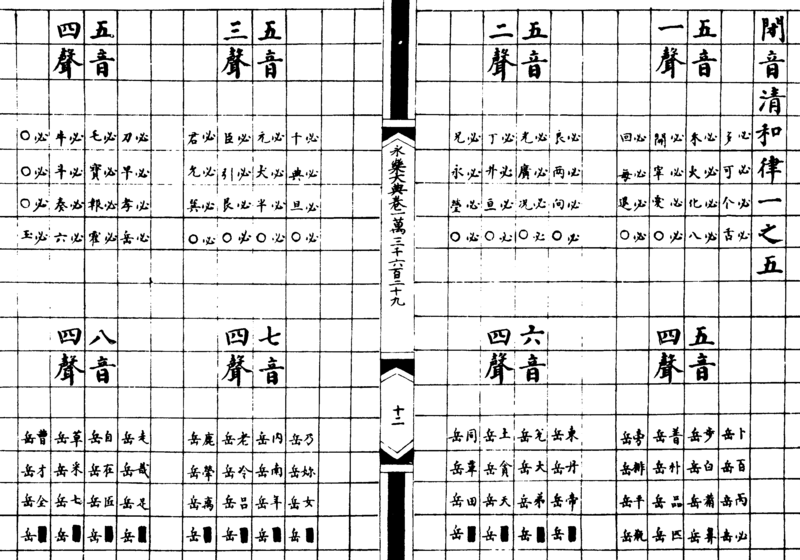 開音清和律一之五
五音
一聲
必多必禾必開必回
必可必火必宰必每
必个必化必愛必退
必舌必八必○必○
五音
二聲
必良必光必丁必兄
必兩必廣必井必永
必向必况必亘必瑩
必○必○必○必○
五音
四聲
卜岳步岳普岳旁岳
百岳白岳朴岳排岳
丙岳葡岳品岳平岳
必岳鼻岳匹岳瓶岳
六音
四聲
東岳兌岳土岳同岳
丹岳大岳貪岳覃岳
帝岳弟岳天岳田岳
■岳■岳■岳■岳
永樂大典卷一萬三千六百二十九
十二
五音
三聲
必千必元必臣必君
必典必犬必引必允
必旦必半必艮必巽
必○必○必○必○
五音
四聲
必刀必毛必牛必○
必早必寶必斗必○
必孝必報必奏必○
必岳必霍必六必玉
七音
四聲
乃岳內岳老岳鹿岳
妳岳南岳冷岳犖岳
女岳年岳呂岳离岳
■岳■岳■岳■岳
八音
四聲
走岳自岳草岳曹岳
哉岳在岳采岳才岳
足岳匠岳七岳全岳
■岳■岳■岳■岳